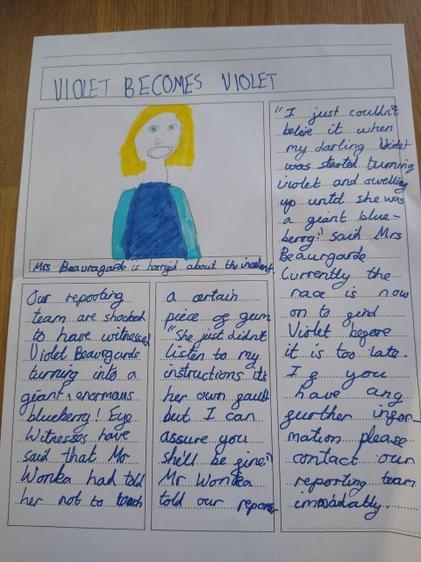 VIOLET BECOMES VIOLET
Mrs Beauragarde is horrified about the incident.
Our reporting
team are shocked
to have witnessed
Violet Beauregarde
turning into a
giant, enormous
blueberry! Eye
Witnesses have
said that Mr
Wonka had told
her not to touch
a certain
piece of gum
"She just didn't
listen to my
instructions its
her own fault
but I can
assure you
she'll be fine"
Mr Wonka
told our reporter
"I just couldn't
belive it when
my darling Violet
was started turning
violet and swelling
up until she was
a giant blue-
berry!" said Mrs
Beaurgarde
Currently the
race is now
on to find
Violet before
it is too late.
If you
have any
further infor-
mation please
contact our
reporting team